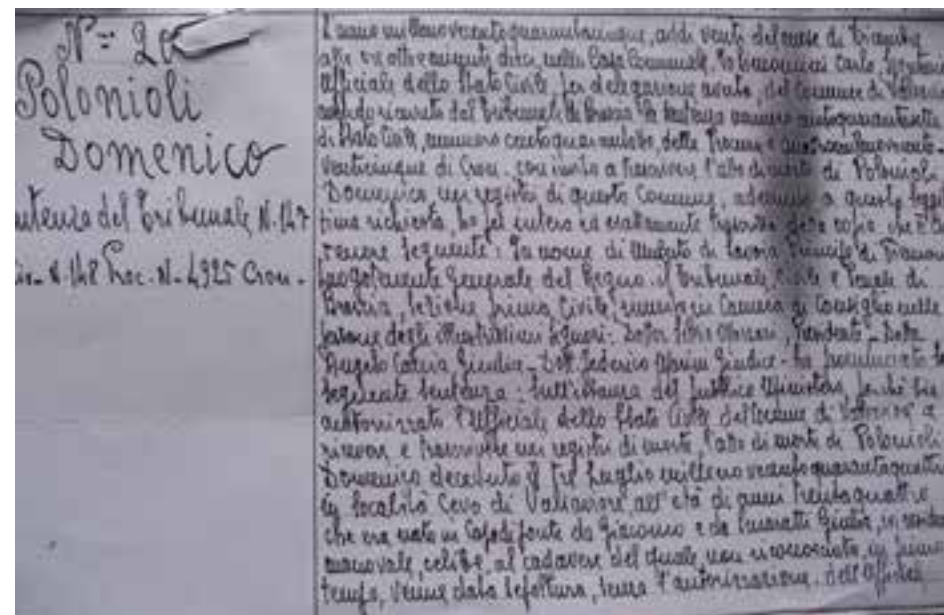 N= 20
Polonioli
Domenico
Sentenza del Tribunale N. 147
N. 148 Proc. N. 4925 Cron.
L'anno millenovecentoquarantacinque, addì venti del mese di
alle ore nella Casa Comunale, Io Carlo,
Ufficiale dello Stato Civile, per delegazione avuta, del Comune di
ricevuto dal Tribunale di Brescia la sentenza numero
di Stato Civile, numero centoquarantotto delle Proc. e
venticinque di Cron., con invito a trascrivere l'atto di morte di Polonioli
Domenico nei registri di questo Comune, aderendo a questa
tima richiesta, ho per intero ed esattamente copia che è del
tenore seguente: In nome di Umberto di Savoia Principe di
Luogotenente Generale del Regno. il Tribunale Civile e Penale di
Brescia, sezione prima Civile, in Camera di Consiglio nelle
persone degli Illustrissimi Signori: Presidente - Dott.
Angelo Giudice - Dott. Federico Giudice - ha pronunciato la
seguente sentenza: sull'istanza del Pubblico Ministero, perché sia
autorizzato l'Ufficiale dello Stato Civile del Comune di a
ricevere e trascrivere nei registri di morte, l'atto di morte di Polonioli
Domenico deceduto il tre Luglio millenovecentoquarantaquattro
in località Cevo di Valsaviore all'età di anni trentaquattro
che era nato in Capodiponte da Giacomo e da Giulia,
manovale, celibe, al cadavere del quale, non riconosciuto, in primo
tempo, venne data sepoltura, senza l'autorizzazione dell'Ufficiale